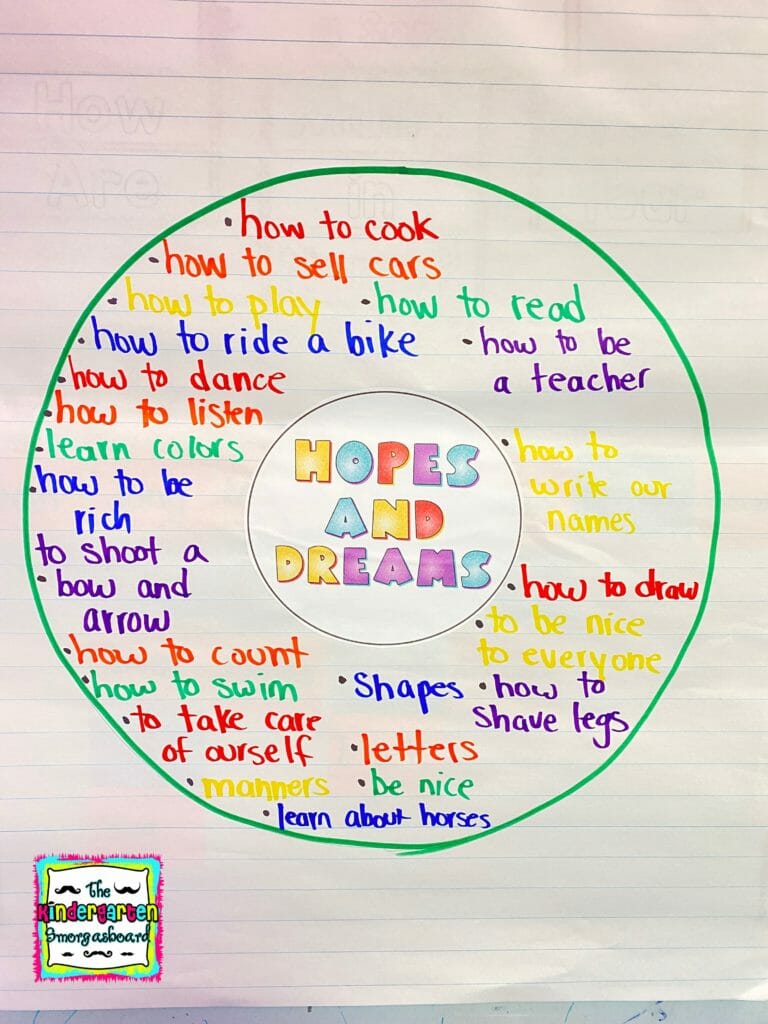 How
Are
in
• how to cook
• how to sell cars
• how to play • how to read
• how to ride a bike • how to be
a teacher
• how to dance
• how to listen
• learn colors
• how to be
rich
to shoot a
• bow and
arrow
HOPES
AND
DREAMS
• how to
write our
names
• how to draw
• to be nice
to everyone
• how to count
• how to swim • Shapes • how to
shave legs
• to take care
of ourself • letters
• manners • be nice
• learn about horses
The
Kindergarten
Smorgasboard